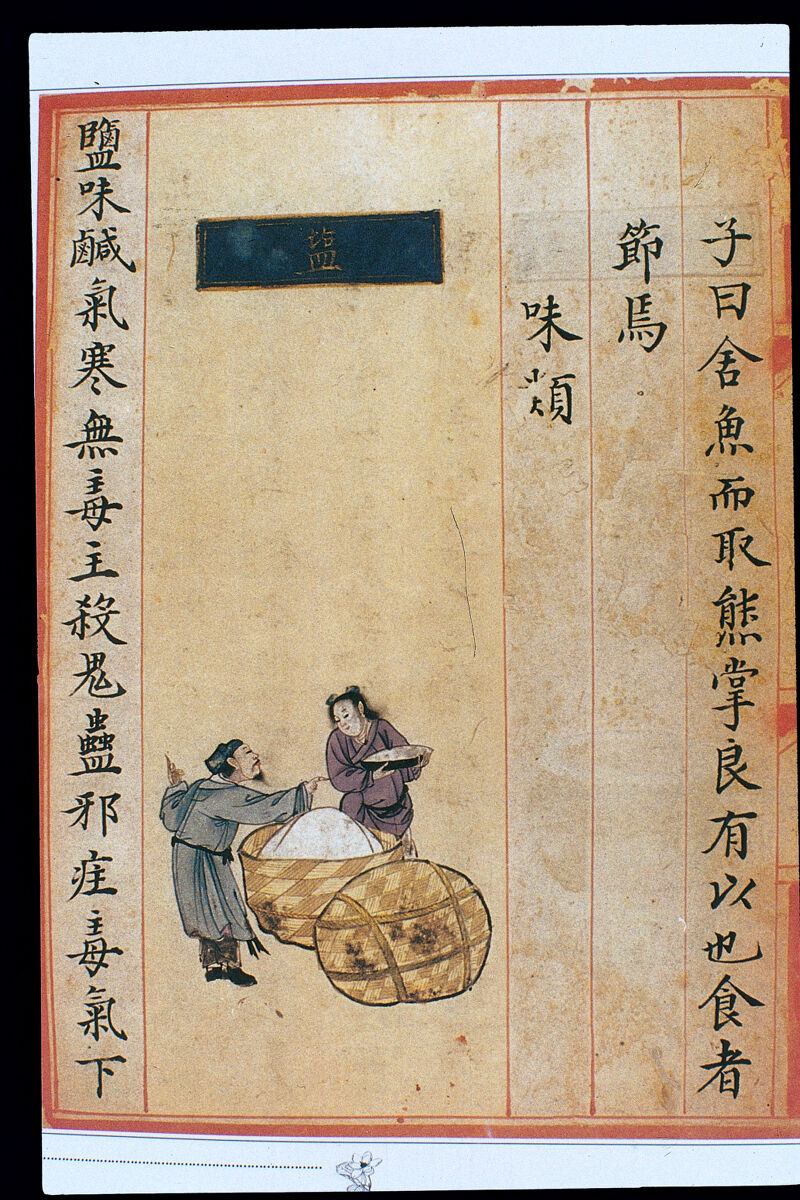 子曰舍魚而取熊掌良有以也食者
節焉
味類
塩
鹽味鹹氣寒無毒主殺鬼蠱邪疰毒氣下